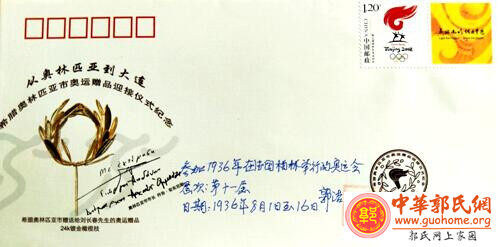 1.20
中国邮政
CHINA
Beijing 2008
从奥林匹亚到大连
希腊奥林匹亚市奥运赠品迎接仪式纪念
参加1936年在德国柏林举行的奥运会
届次:第十一届
日期:1936年8月1日至16日
郭洁
希腊奥林匹亚市赠送给刘长春先生的奥运赠品
24k镀金橄榄枝
中華郭氏網
www.guohome.org
郭氏网上家园